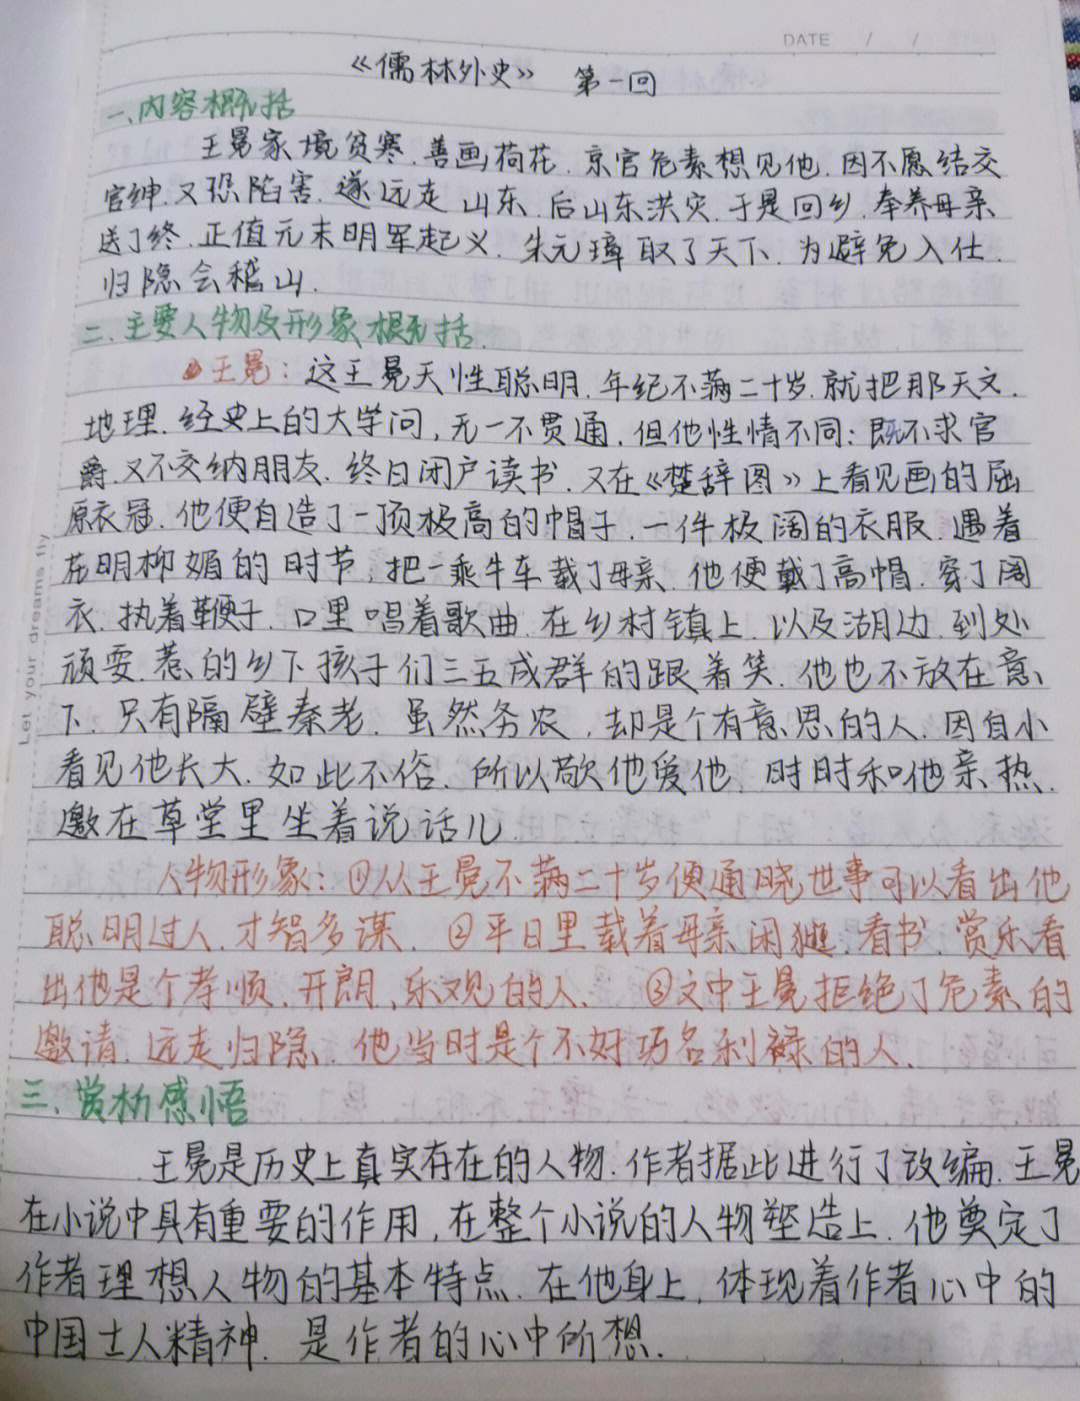 DATE / /
《儒林外史》 第一回
一、内容概括
王冕家境贫寒.善画荷花.京官危素想见他.因不愿结交
官绅.又恐陷害.遂远走山东.后山东洪灾.于是回乡.奉养母亲
送了终.正值元末明军起义.朱元璋取了天下.为避免入仕.
归隐会稽山.
二.主要人物及形象概括.
王冕：这王冕天性聪明.年纪不满二十岁.就把那天文.
地理.经史上的大学问,无一不贯通.但他性情不同：既不求官
爵.又不交纳朋友.终日闭户读书.又在《楚辞图》上看见画的屈
原衣冠.他便自造了一顶极高的帽子.一件极阔的衣服.遇着
花明柳媚的时节,把一乘牛车载了母亲.他便戴了高帽.穿了阔
衣.执着鞭子.口里唱着歌曲.在乡村镇上.以及湖边.到处
顽耍.惹的乡下孩子们三五成群的跟着笑.他也不放在意
下.只有隔壁秦老.虽然务农,却是个有意思的人.因自小
看见他长大.如此不俗.所以敬他爱他.时时和他亲热.
邀在草堂里坐着说话儿.
人物形象：①从王冕不满二十岁便通晓世事可以看出他
聪明过人.才智多谋. ②平日里载着母亲闲逛.看书.赏乐看
出他是个孝顺.开朗,乐观的人. ③文中王冕拒绝了危素的
邀请.远走归隐.他当时是个不好功名利禄的人.
三、赏析感悟
王冕是历史上真实存在的人物.作者据此进行了改编.王冕
在小说中具有重要的作用,在整个小说的人物塑造上.他奠定了
作者理想人物的基本特点.在他身上,体现着作者心中的
中国士人精神.是作者的心中所想.
Let your dreams fly